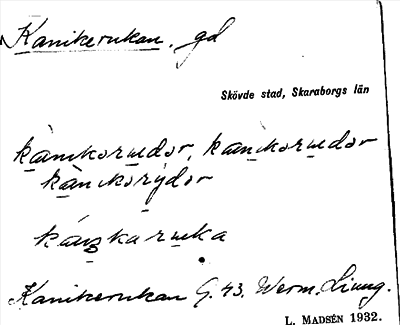 Kanikerukan. gd
Skövde stad, Skaraborgs län
kanikorudor, kanikorudor
kànikorydor
kánskaruka
Kanikerukan G. 43. Werm. Ljung.
L. MADSÉN 1932.